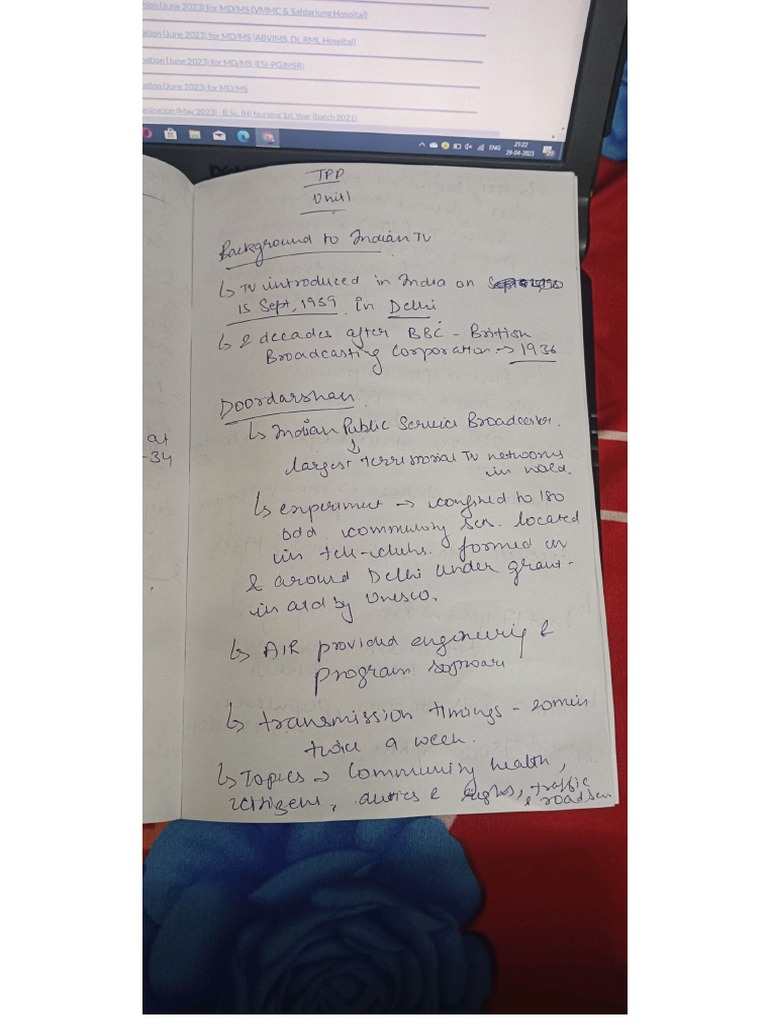 ation (June 2023) for MD/MS (VMMC & Safdarjung Hospital)
ation (June 2023) for MD/MS (ABVIMS, Dr. RML Hospital)
nation (June 2023) for MD/MS (ESI-PGIMSR)
ation (June 2023) for MD/MS
amination (May 2023) - B.Sc. (H) Nursing 1st Year (batch 2021)
ENG
21:22
29-04-2023
TPP
Unit 1
Background to Indian TV
↳ TV introduced in India on
15 Sept, 1959 in Delhi
↳ 2 decades after BBC - British
Broadcasting Corporation → 1936
Doordarshan
↳ Indian Public Service Broadcaster.
↓
largest terrestorial TV networks
in world.
↳ experiment → confined to 180
odd community sets. located
in tele-clubs. formed in
& around Delhi under grant-
in aid by Unesco.
↳ AIR provided engineering &
program
↳ transmission timings - 20 min
twice a week.
↳ Topics → Community health,
citizens, duties & rights, traffic
& road
at
-34